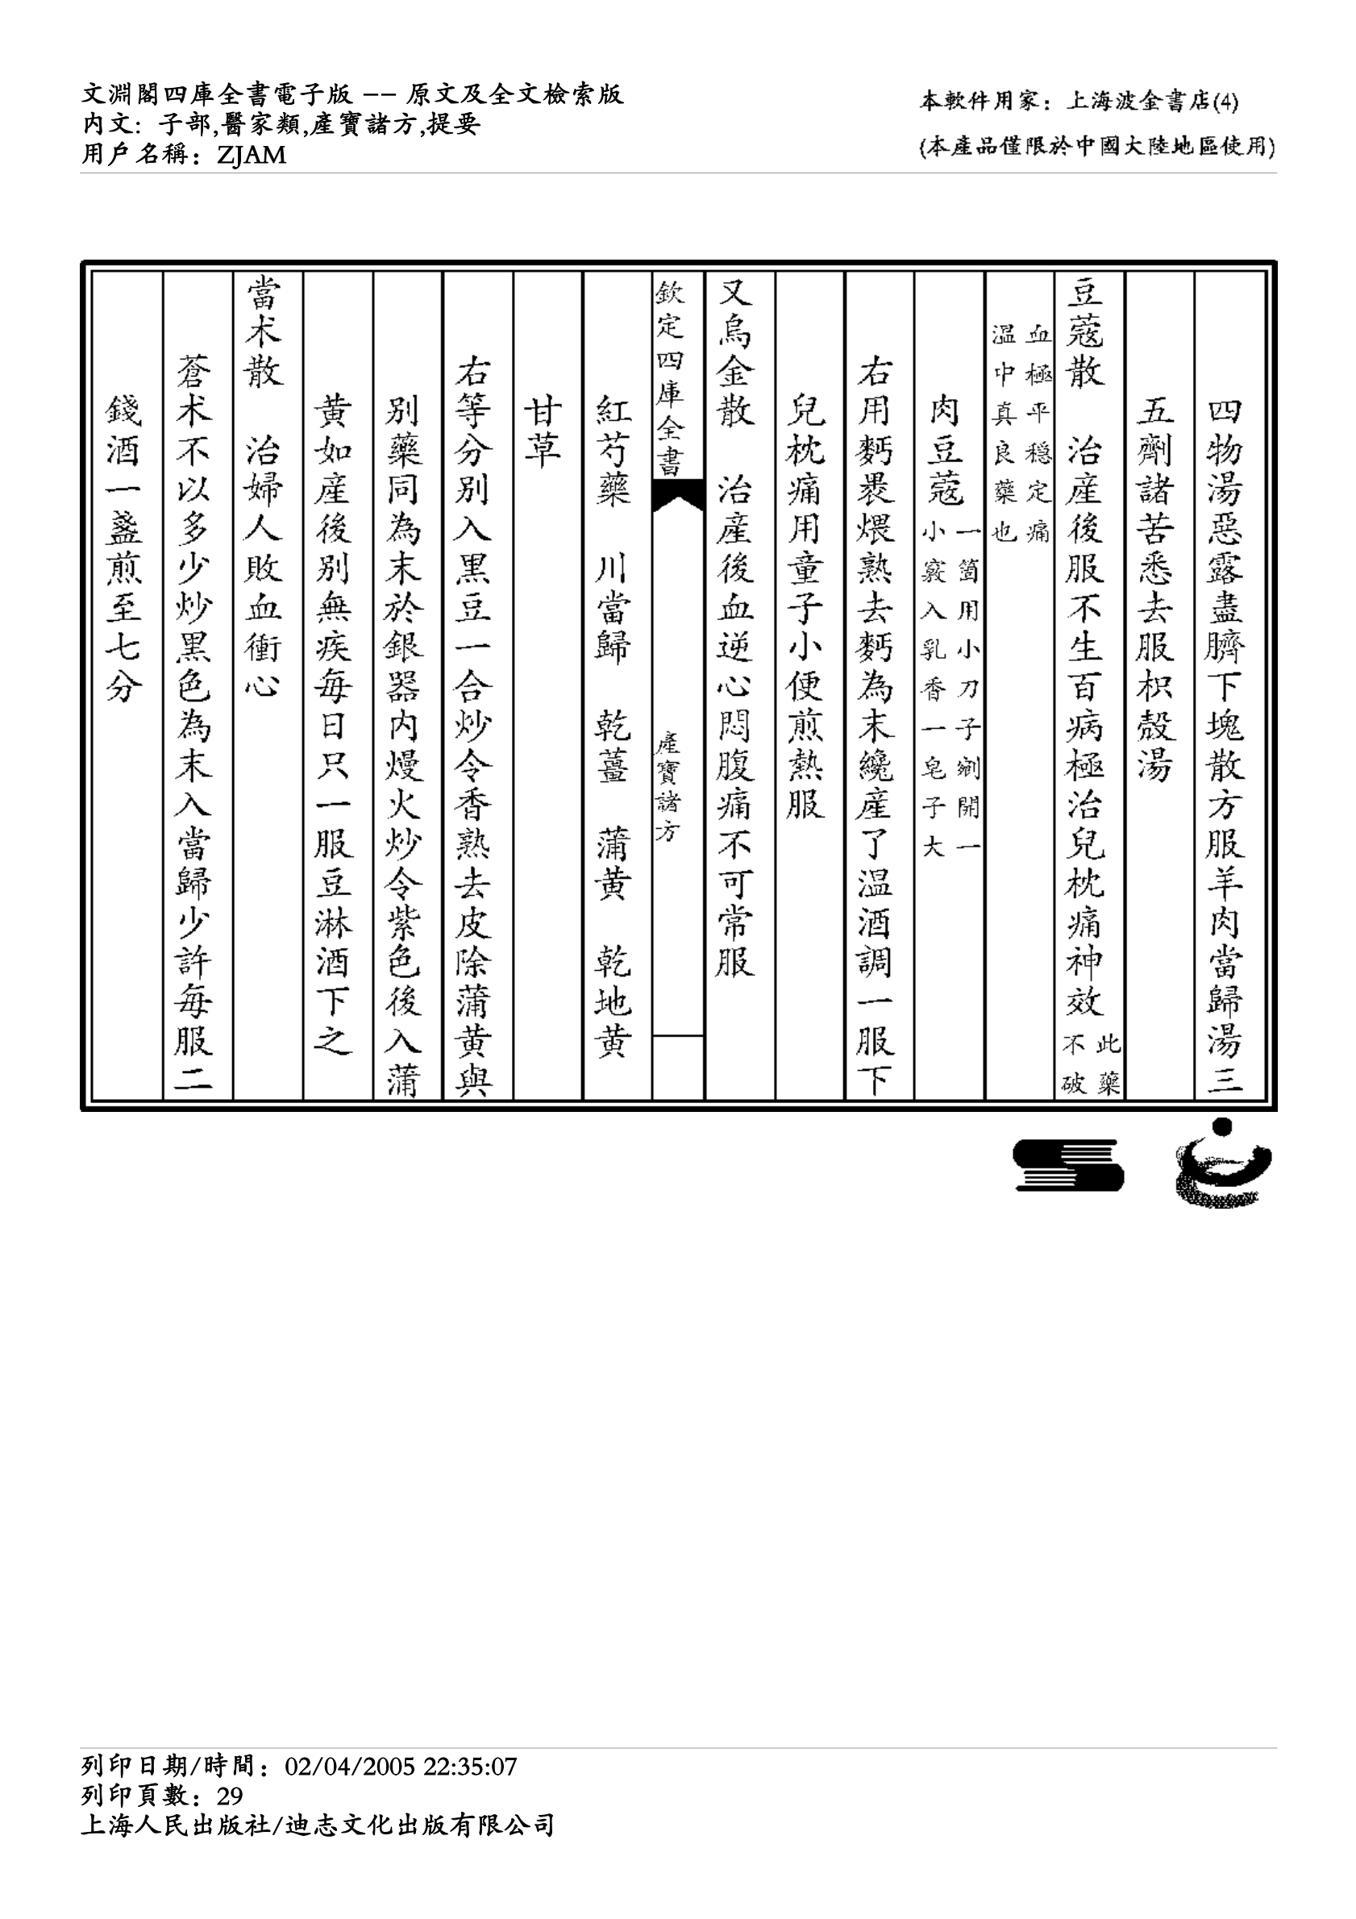 文淵閣四庫全書電子版 －－ 原文及全文檢索版
內文：子部,醫家類,產寶諸方,提要
用戶名稱：ZJAM
本軟件用家：上海波金書店(4)
(本產品僅限於中國大陸地區使用)
四物湯惡露盡臍下塊散方服羊肉當歸湯三
五劑諸苦悉去服枳殼湯
豆蔻散　治產後服不生百病極治兒枕痛神效此藥不破
血極平穩定痛溫中真良藥也
肉豆蔻一箇用小刀子剜開一小竅入乳香一皂子大
右用麪褁煨熟去麪為末纔產了溫酒調一服下
兒枕痛用童子小便煎熱服
又烏金散　治產後血逆心悶腹痛不可常服
欽定四庫全書　產寶諸方
紅芍藥　川當歸　乾薑　蒲黄　乾地黄
甘草
右等分别入黑豆一合炒令香熟去皮除蒲黄與
别藥同為末於銀器内熳火炒令紫色後入蒲
黄如產後别無疾每日只一服豆淋酒下之
當术散　治婦人敗血衝心
蒼术不以多少炒黑色為末入當歸少許每服二
錢酒一盞煎至七分
列印日期/時間：02/04/2005 22:35:07
列印頁數：29
上海人民出版社/迪志文化出版有限公司